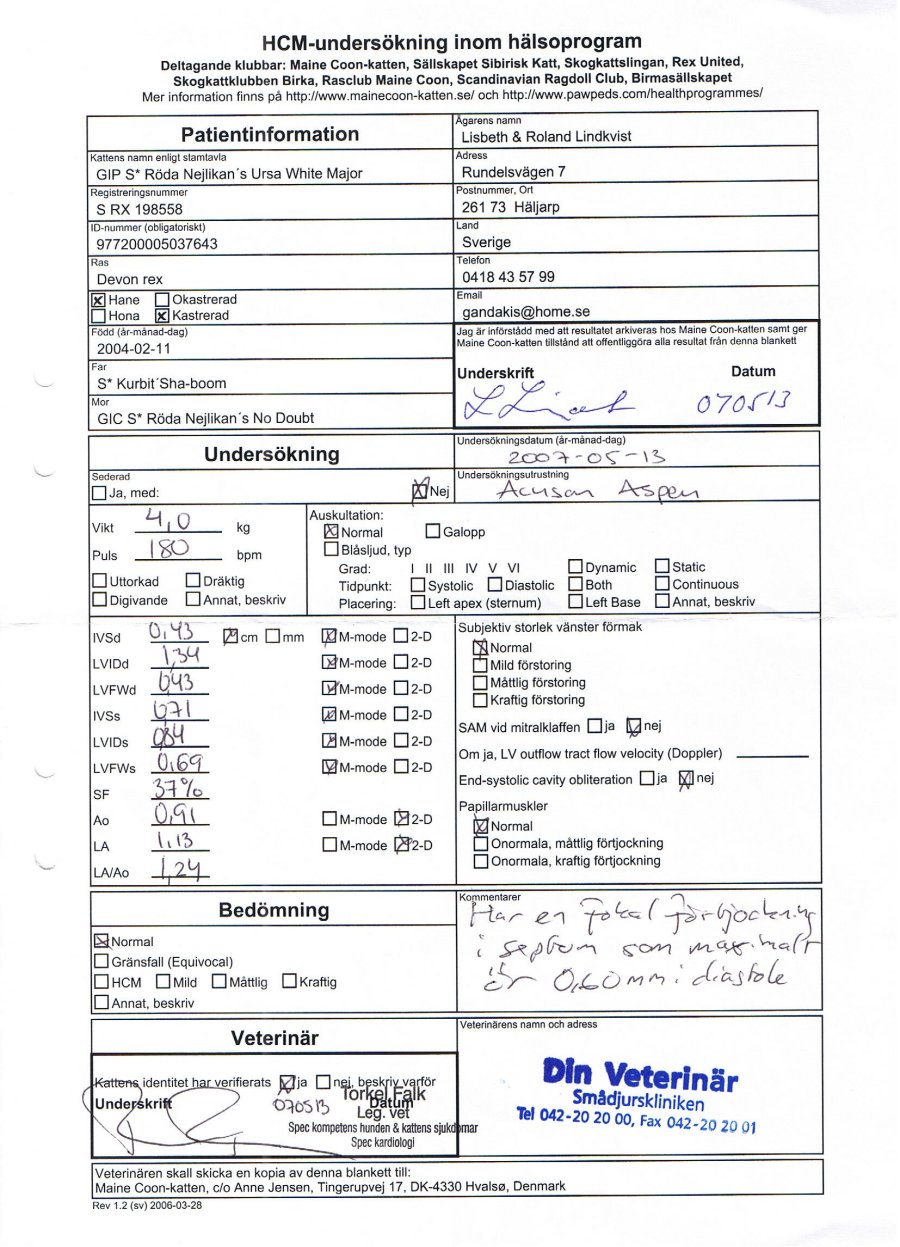 HCM-undersökning inom hälsoprogram
Deltagande klubbar: Maine Coon-katten, Sällskapet Sibirisk Katt, Skogkattslingan, Rex United,
Skogkattklubben Birka, Rasclub Maine Coon, Scandinavian Ragdoll Club, Birmasällskapet
Mer information finns på http://www.mainecoon-katten.se/ och http://www.pawpeds.com/healthprogrammes/
Patientinformation
Kattens namn enligt stamtavla
GIP S* Röda Nejlikan´s Ursa White Major
Registreringsnummer
S RX 198558
ID-nummer (obligatoriskt)
977200005037643
Ras
Devon rex
Hane Okastrerad
Hona Kastrerad
Född (år-månad-dag)
2004-02-11
Far
S* Kurbit´Sha-boom
Mor
GIC S* Röda Nejlikan´s No Doubt
Ägarens namn
Lisbeth & Roland Lindkvist
Adress
Rundelsvägen 7
Postnummer, Ort
261 73 Häljarp
Land
Sverige
Telefon
0418 43 57 99
Email
gandakis@home.se
Jag är införstådd med att resultatet arkiveras hos Maine Coon-katten samt ger
Maine Coon-katten tillstånd att offentliggöra alla resultat från denna blankett
Underskrift Datum
070513
Undersökning
Undersökningsdatum (år-månad-dag)
2007-05-13
Sederad
Ja, med: Nej
Undersökningsutrustning
Acuson Aspen
Vikt 4,0 kg
Puls 180 bpm
Uttorkad Dräktig
Digivande Annat, beskriv
Auskultation:
Normal Galopp
Blåsljud, typ
Grad: I II III IV V VI Dynamic Static
Tidpunkt: Systolic Diastolic Both Continuous
Placering: Left apex (sternum) Left Base Annat, beskriv
IVSd 0,43 cm mm M-mode 2-D
LVIDd 1,34 M-mode 2-D
LVFWd 0,43 M-mode 2-D
IVSs 0,71 M-mode 2-D
LVIDs 0,84 M-mode 2-D
LVFWs 0,69 M-mode 2-D
SF 37%
Ao 0,91 M-mode 2-D
LA 1,13 M-mode 2-D
LA/Ao 1,24
Subjektiv storlek vänster förmak
Normal
Mild förstoring
Måttlig förstoring
Kraftig förstoring
SAM vid mitralklaffen ja nej
Om ja, LV outflow tract flow velocity (Doppler)
End-systolic cavity obliteration ja nej
Papillarmuskler
Normal
Onormala, måttlig förtjockning
Onormala, kraftig förtjockning
Bedömning
Normal
Gränsfall (Equivocal)
HCM Mild Måttlig Kraftig
Annat, beskriv
Kommentarer
Har en fokal förtjockning
i septum som maximalt
är 0,60mm i diastole
Veterinär
Kattens identitet har verifierats ja nej, beskriv varför
Underskrift Datum
070513
Torkel Falk
Leg. vet
Spec kompetens hunden & kattens sjukdomar
Spec kardiologi
Veterinärens namn och adress
Din Veterinär
Smådjurskliniken
Tel 042-20 20 00, Fax 042-20 20 01
Veterinären skall skicka en kopia av denna blankett till:
Maine Coon-katten, c/o Anne Jensen, Tingerupvej 17, DK-4330 Hvalsø, Denmark
Rev 1.2 (sv) 2006-03-28